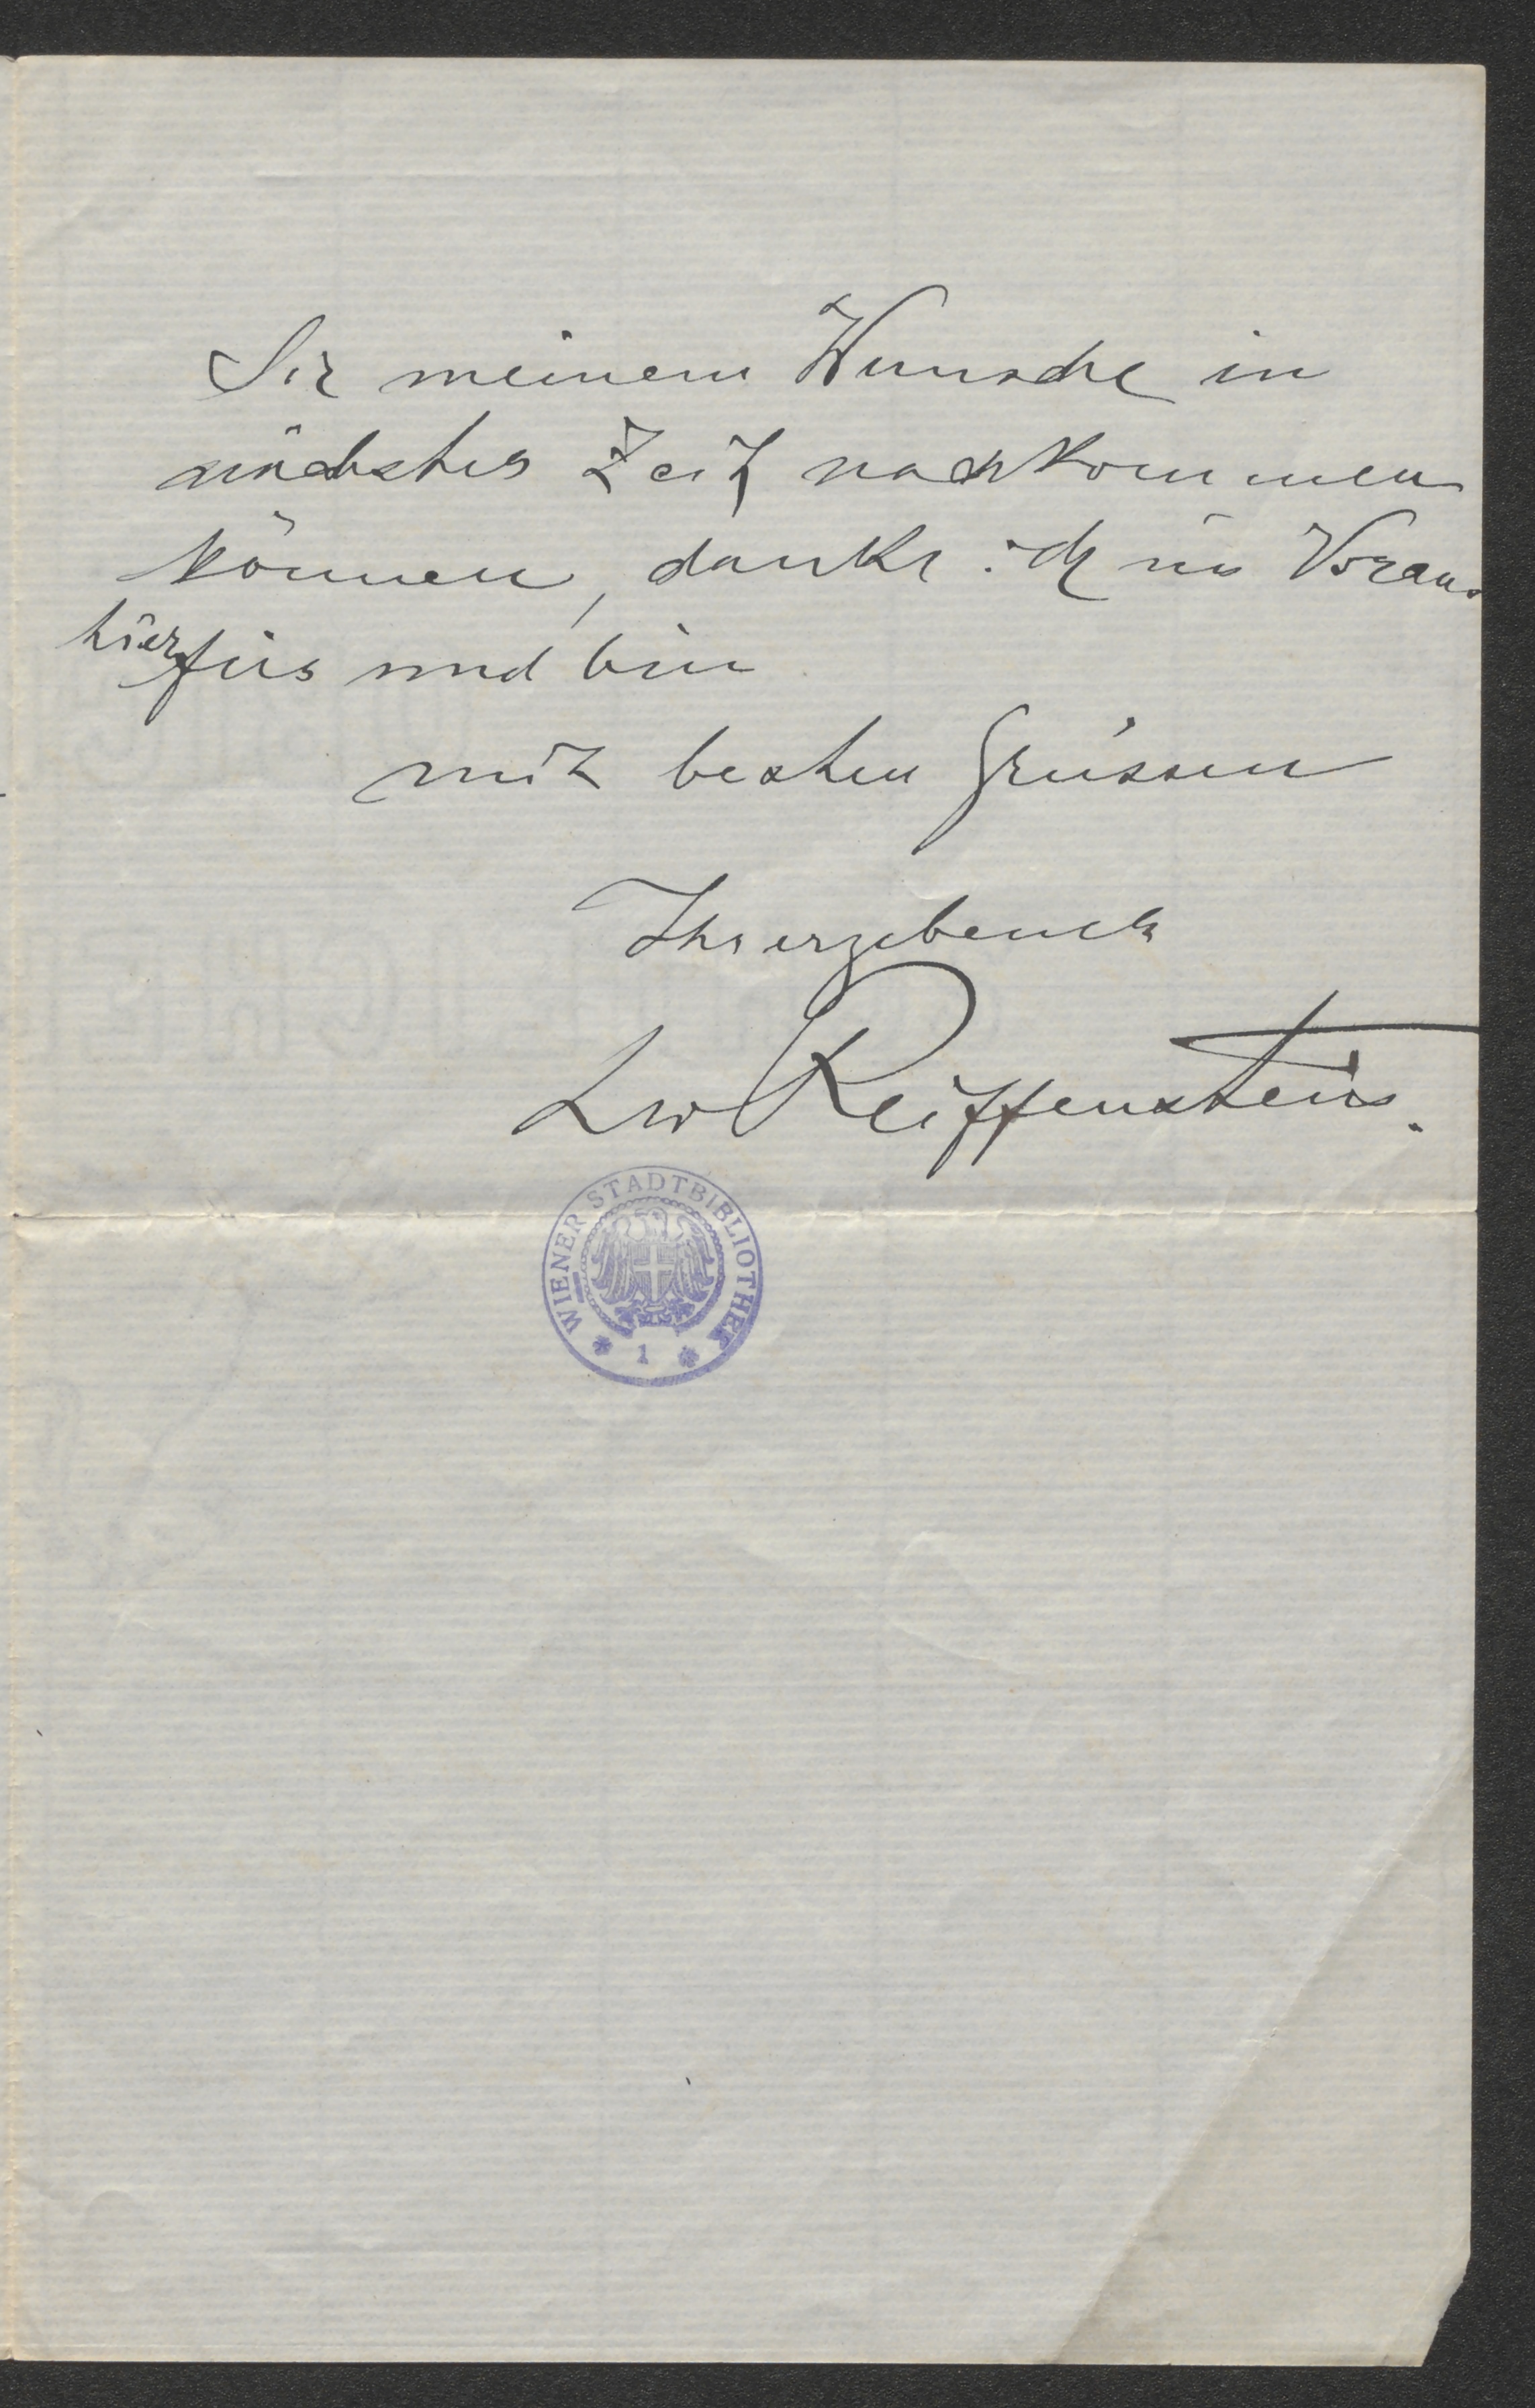 Sie meinem Wunsche in
nächster Zeit nachkommen
können, danke ich im Voraus
hierfür und bin
mit besten Grüssen
Ihr ergebenster
Leo Reiffenstein.
WIENER STADTBIBLIOTHEK
* 1 *